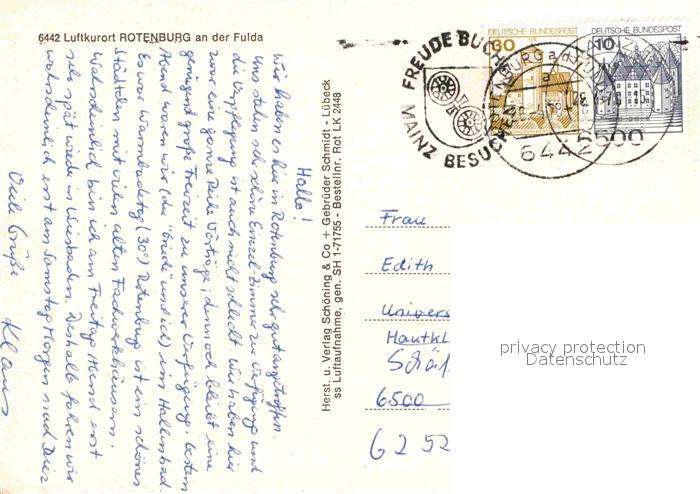 6442 Luftkurort ROTENBURG an der Fulda
Hallo!
Wir haben es hier in Rotenburg sehr gut angetroffen.
Uns stehen sehr schöne Einzelzimmer zur Verfügung und
die Verpflegung ist auch nicht schlecht. Wir haben hier
zwar eine ganze Reihe Vorträge, dennoch bleibt eine
genügend große Freizeit zu unserer Verfügung. Gestern
Abend waren wir (die "Brüder" und ich) im Hallenbad.
Es war Warmbadetag (30°) Rotenburg ist ein schönes
Städtchen mit vielen alten Fachwerkhäusern.
Wahrscheinlich bin ich am Freitag Abend erst
sehr spät wieder in Wiesbaden. Deshalb fahren wir
wahrscheinlich erst am Samstag Morgen nach Diez
Viele Grüße
Klaus
Herst. u. Verlag Schöning & Co + Gebrüder Schmidt - Lübeck
ss Luftaufnahme, gen. SH 1-71755 - Bestellnr. Rot LK 2448
FREUDE BUCHE
MAINZ BESUCHE
DEUTSCHE BUNDESPOST
30
DEUTSCHE BUNDESPOST
10
6442
6500
Frau
Edith
Univers
Hautkl
Schäf
6500
6252
privacy protection
Datenschutz